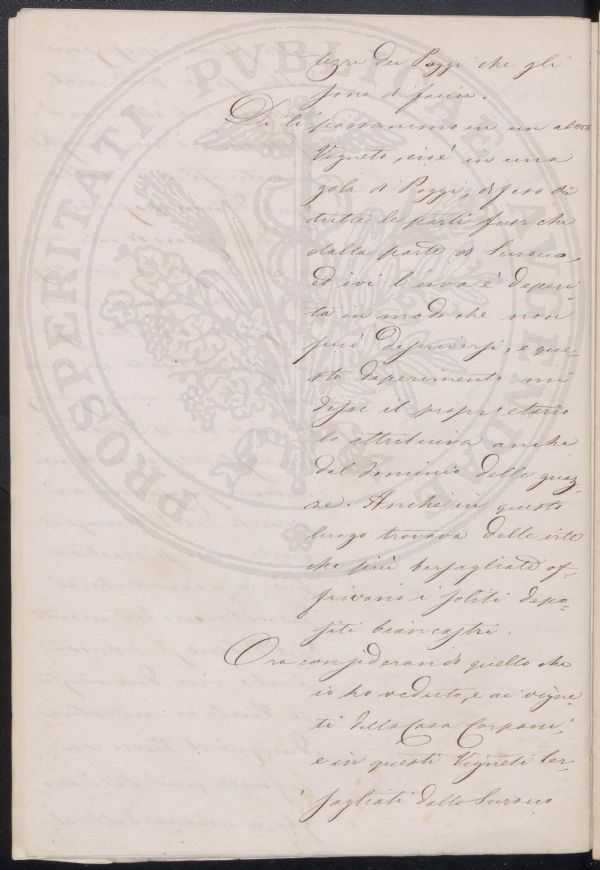 tezze dei Poggi che gli
sono di faccia.
Di li passammo in un altro
Vigneto, cioè in una
gola di Poggi, difeso di
tutte le parti fuor che
dalla parte di Surouo,
ed ivi l'uva è deperi-
ta in modo che non
puù descriversi, e que-
sto deperimento mi
disse il proprietario
lo attribuiva anche
dal dominio delle guaz-
ze. Anche in questo
luogo trovava delle vite
che più bersagliate of-
frivano i soliti depo-
siti biancastri.
Ora considerando quello che
io ho veduto, e ai vigne-
ti della Casa Carpani,
e in questi Vigneti ber-
sagliati dallo Surouo
PROSPERITATI PVBLICAE AVGENDAE